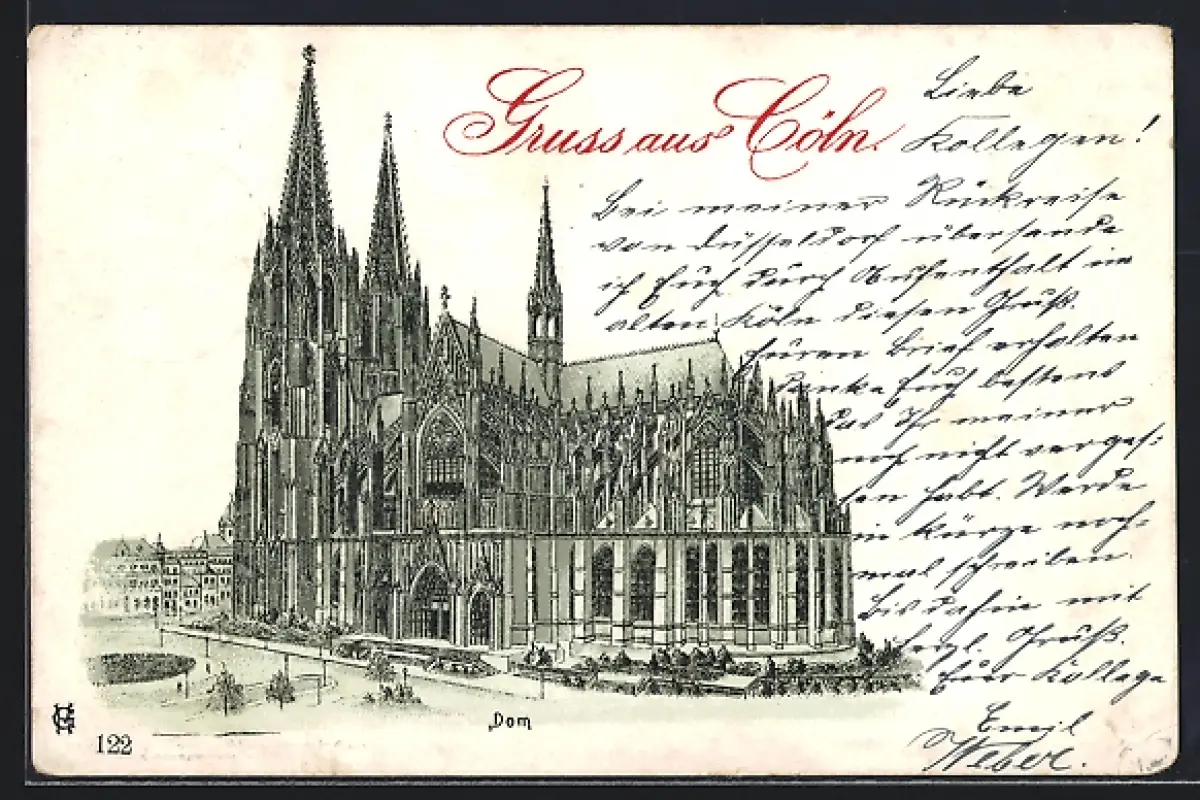 Gruss aus Cöln.
Liebe
Kollegen!
Bei meiner Rückreise
von Düsseldorf übersende
ich Euch durch Aufenthalt im
alten Köln diesen Gruß.
Euren Brief erhalten
danke Euch bestens
das Ihr meiner
noch nicht verges:
sen habt. Werde
in Kürze noch:
mal schreiben
bis dahin mit
herzl. Gruß.
Euer Kollege
Emil
Weber.
Dom
122